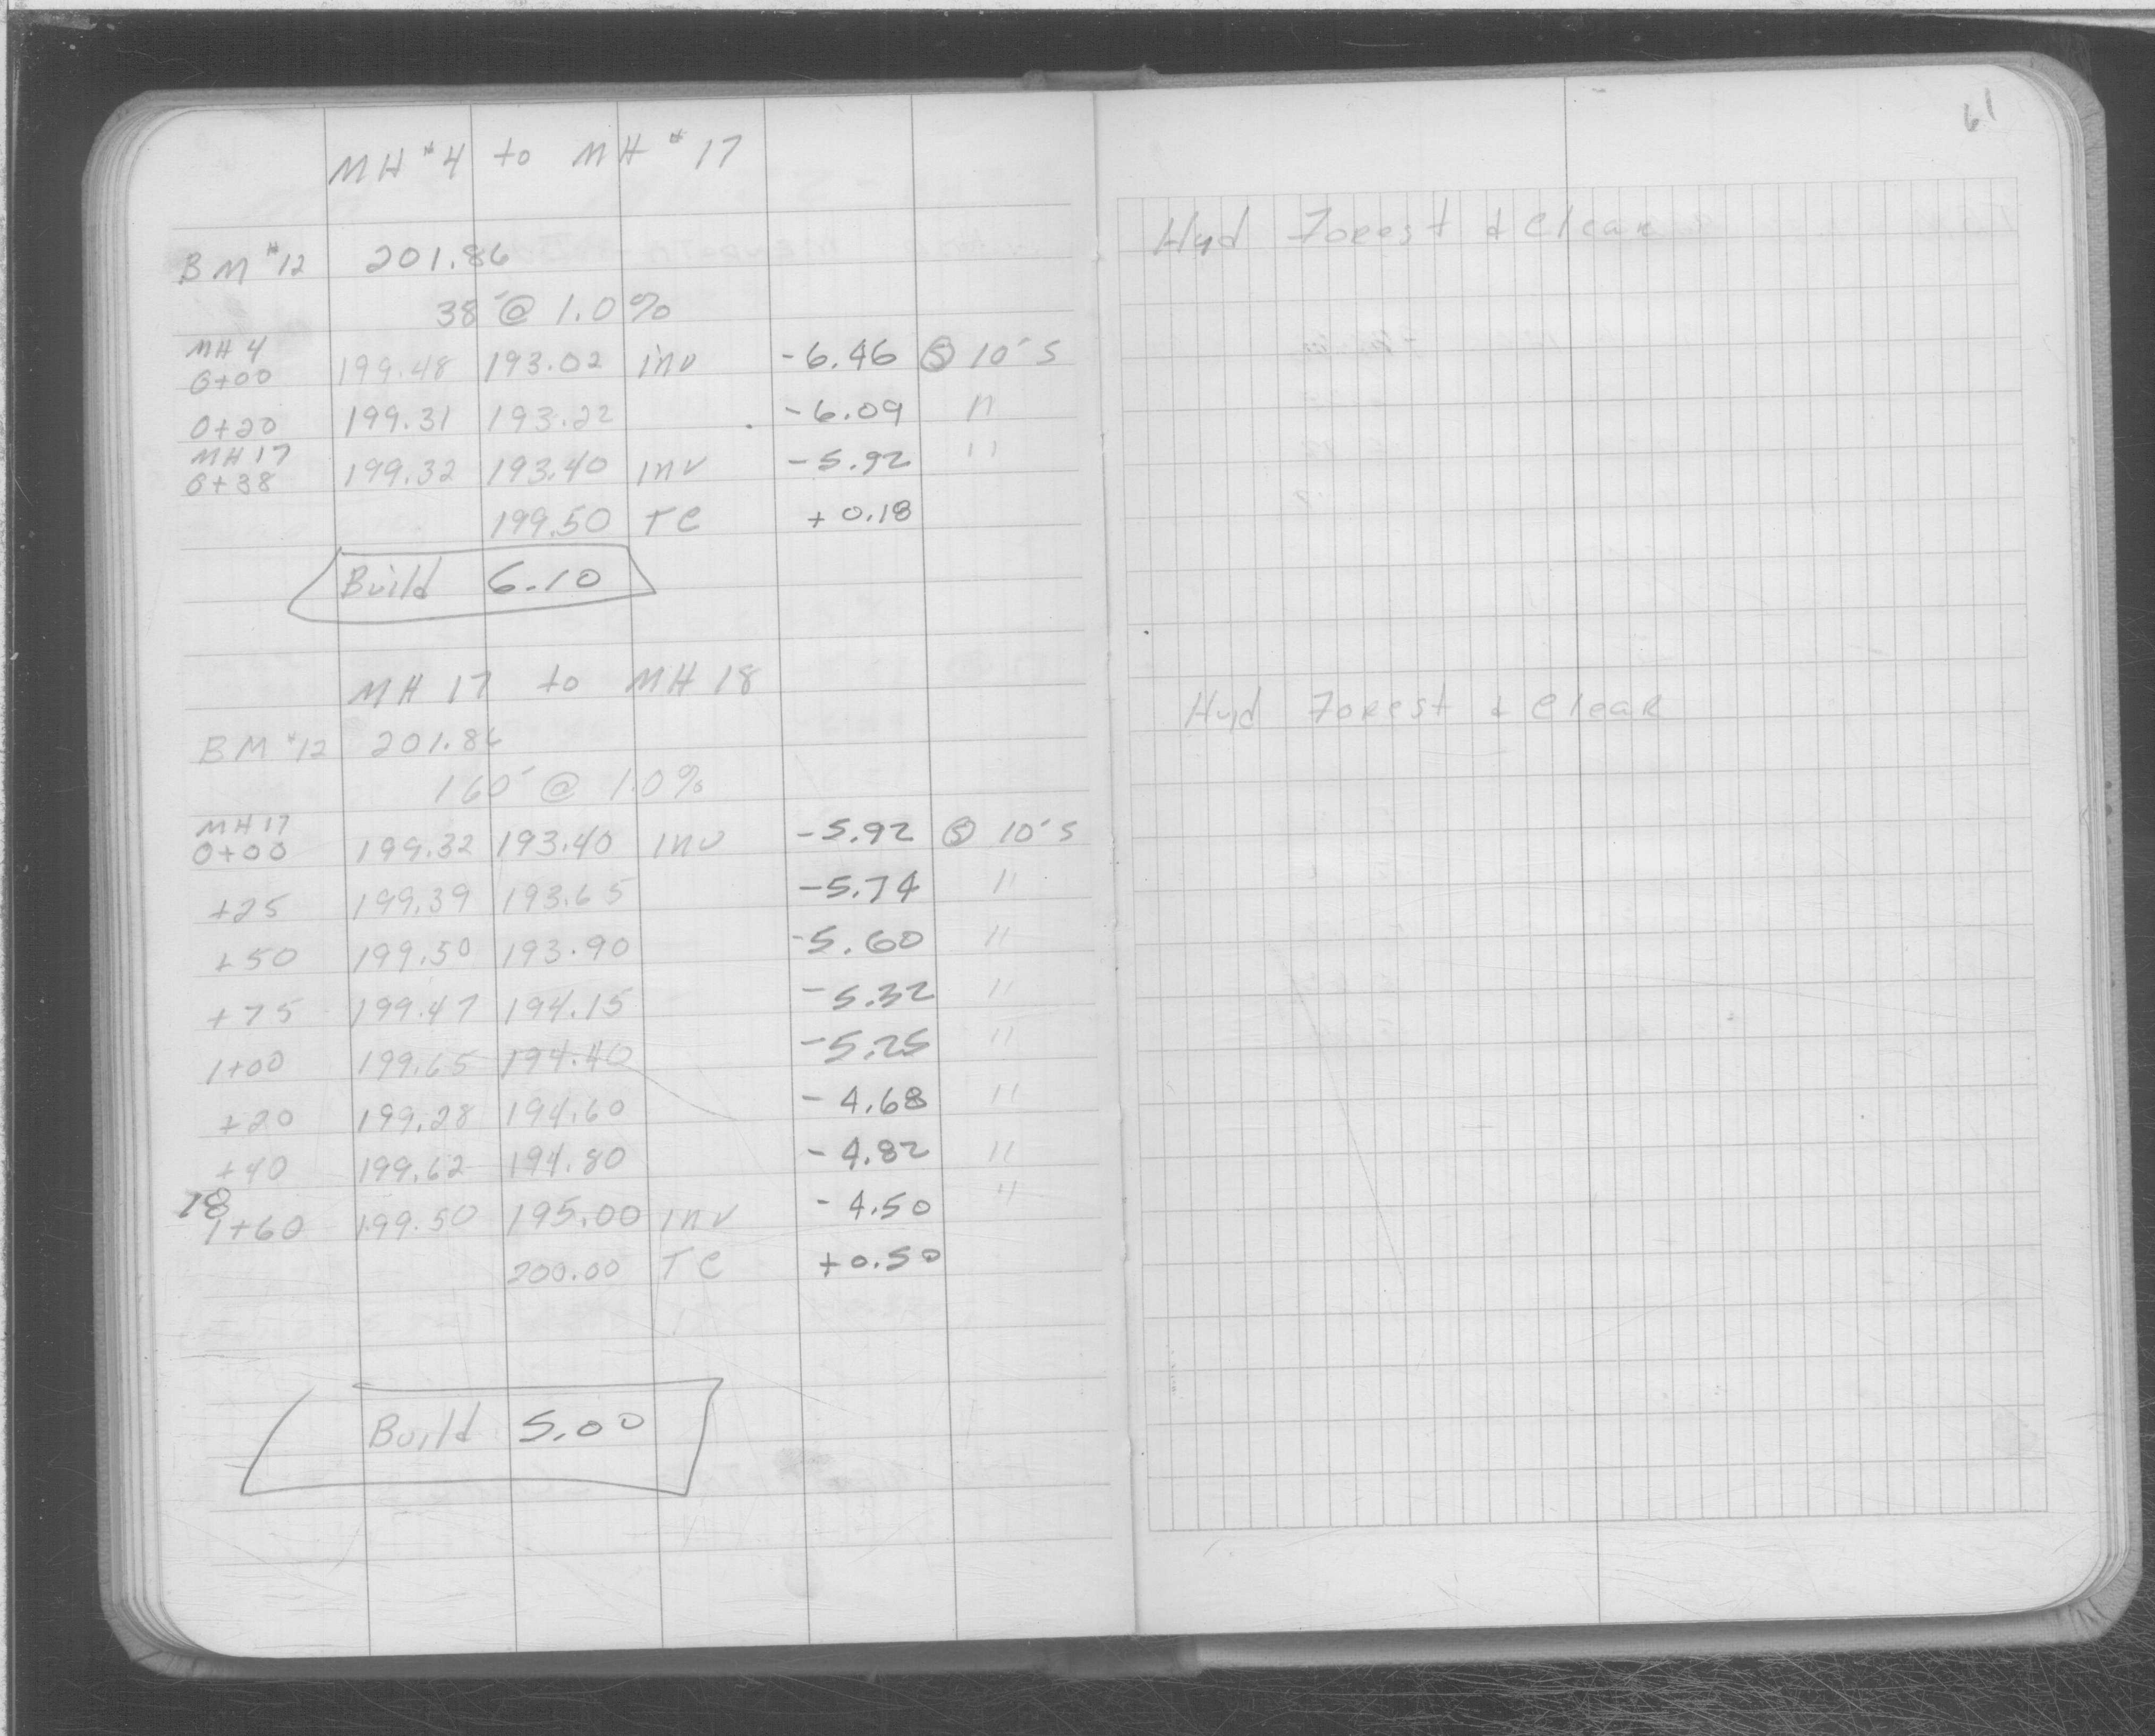 MH #4 to MH #17
BM #12 201.86
38' @ 1.0%
MH 4
0+00 199.48 193.02 inv -6.46 Ⓢ 10'S
0+20 199.31 193.22 -6.09 "
MH 17
0+38 199.32 193.40 inv -5.92 "
199.50 TC +0.18
Build 6.10
MH 17 to MH 18
BM #12 201.86
160' @ 1.0%
MH 17
0+00 199.32 193.40 inv -5.92 Ⓢ 10'S
+25 199.39 193.65 -5.74 "
+50 199.50 193.90 -5.60 "
+75 199.47 194.15 -5.32 "
1+00 199.65 194.40 -5.25 "
+20 199.28 194.60 -4.68 "
+40 199.62 194.80 -4.82 "
18
1+60 199.50 195.00 inv -4.50 "
200.00 TC +0.50
Build 5.00
61
Hyd Forest & Clear
Hyd Forest & Clear